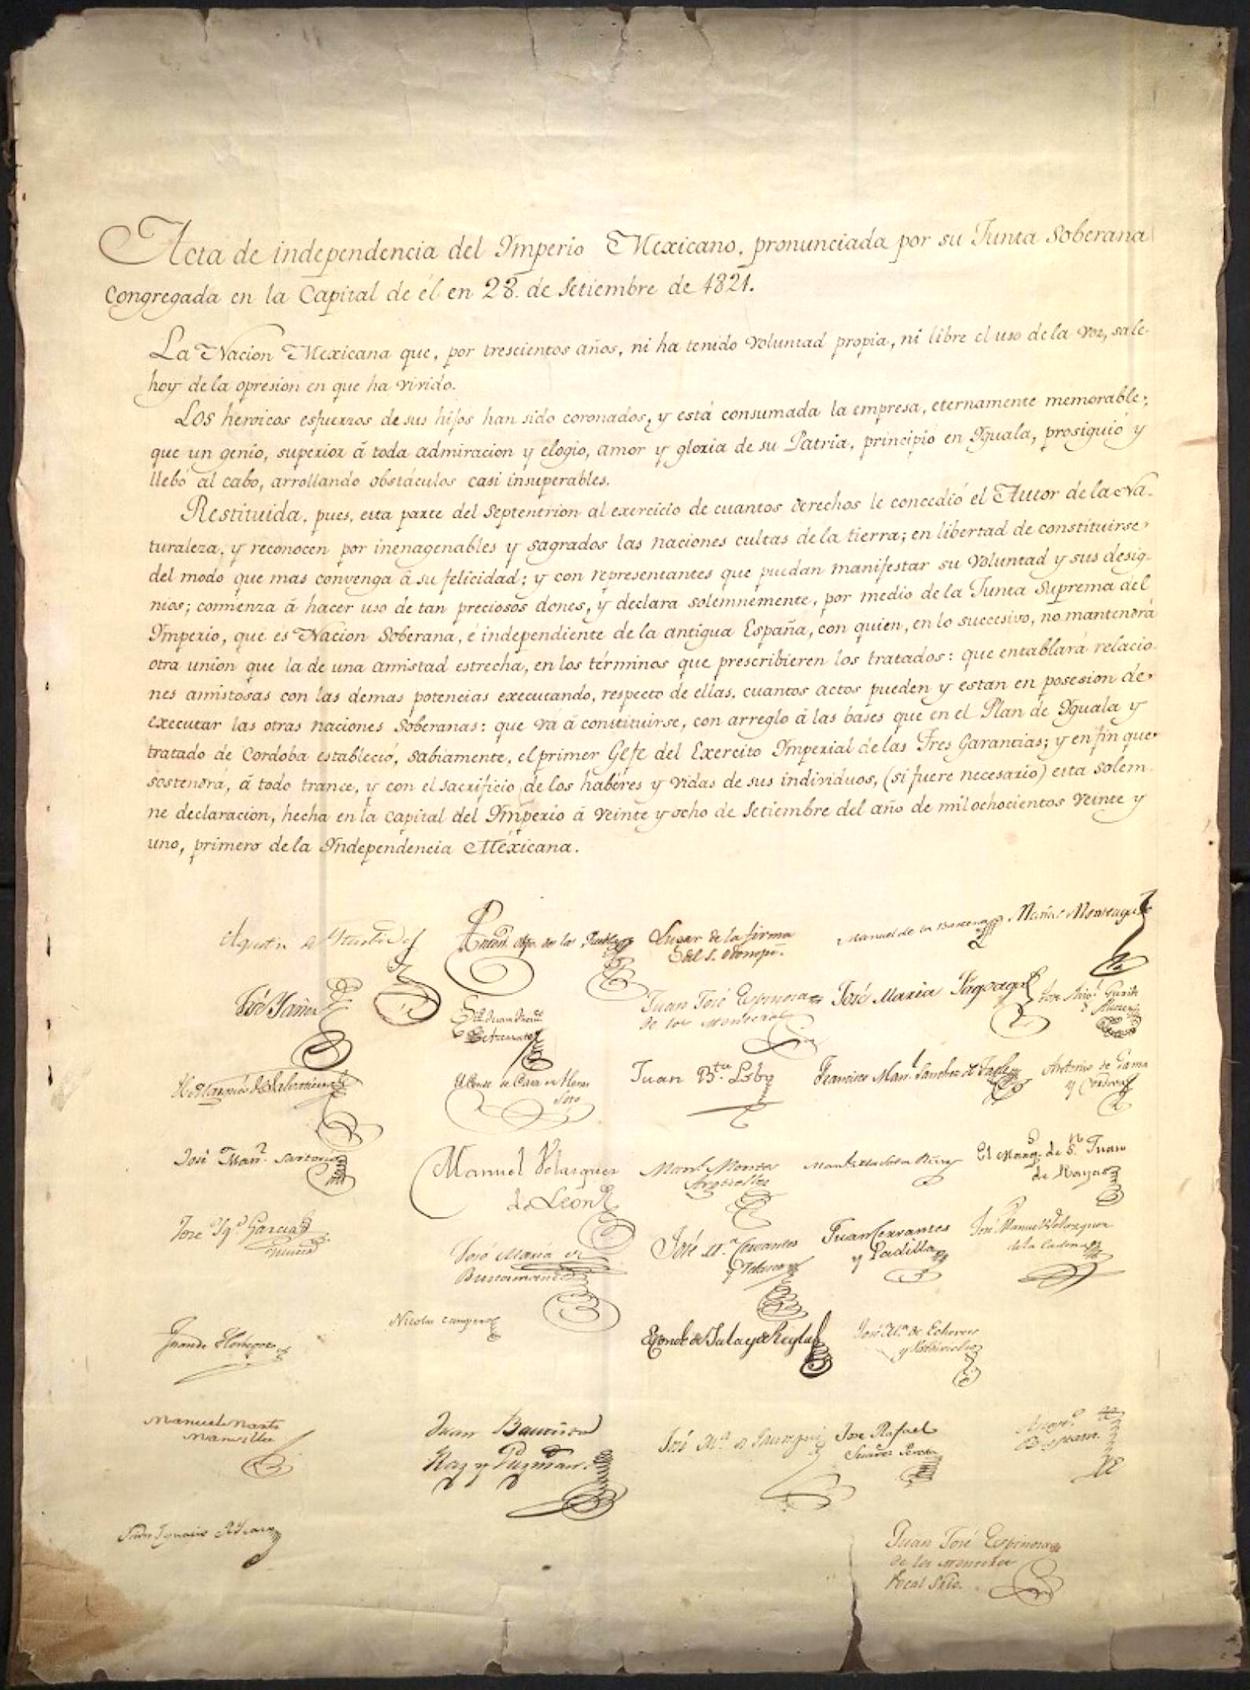 Acta de independencia del Imperio Mexicano, pronunciada por su Junta Soberana
congregada en la Capital de él en 28. de Setiembre de 1821.
La Nacion Mexicana que, por trescientos años, ni ha tenido voluntad propia, ni libre el uso de la voz, sale
hoy de la opresion en que ha vivido.
Los heroicos esfuerzos de sus hijos han sido coronados, y está consumada la empresa, eternamente memorable,
que un genio, superior á toda admiracion y elogio, amor y gloria de su Patria, principió en Iguala, prosiguió y
llebó al cabo, arrollando obstáculos casi insuperables.
Restituida, pues, esta parte del Septentrion al exercicio de cuantos derechos le concedió el Autor de la Na-
turaleza, y reconocen por inenagenables y sagrados las naciones cultas de la tierra; en libertad de constituirse
del modo que mas convenga á su felicidad; y con representantes que puedan manifestar su voluntad y sus desig-
nios; comenza á hacer uso de tan preciosos dones, y declara solemnemente, por medio de la Junta Suprema del
Imperio, que es Nacion Soberana, é independiente de la antigua España, con quien, en lo succesivo, no mantendrá
otra union que la de una amistad estrecha, en los términos que prescribieren los tratados: que entablará relacio-
nes amistosas con las demas potencias executando, respecto de ellas, cuantos actos pueden y estan en posesion de
executar las otras naciones Soberanas: que vá á constituirse, con arreglo á las bases que en el Plan de Iguala y
tratado de Cordoba estableció, sabiamente, el primer Gefe del Exercito Imperial de las Tres Garantias; y en fin que
sostendrá, á todo trance, y con el sacrificio de los haberes y vidas de sus individuos, (si fuere necesario) esta solem-
ne declaracion, hecha en la capital del Imperio á veinte y ocho de Setiembre del año de mil ochocientos veinte y
uno, primero de la Independencia Mexicana.
Agustin de Iturbide Anton. Obpo. de la Puebla Lugar de la firma Manuel de la Barcena Matias Monteagudo
del S. Odonojú.
José Yañez Juan José Espinosa José Maria Fagoaga
de los Monteros
Juan Bta. Lobo Francisco Man. Sanchez de Tagle Antonio de Gama
y Cordova
José Man. Sartorio Manuel Velazquez Manl. Montes El Marq. de S. Juan
de Leon Argüelles de Rayas
José Ign. Garcia José Maria de José M.ª Cervantes Juan Cervantes José Manuel Velazquez
Bustamante y Velasco y Padilla de la Cadena
Juan de Horbegoso Nicolas Campero El conde de Jala y de Regla José M.ª de Echevers
Manuel Juan Bautista José Rafael
Raz y Guzman. Suarez Pereda
Juan José Espinosa
de los Monteros
Vocal Srio.